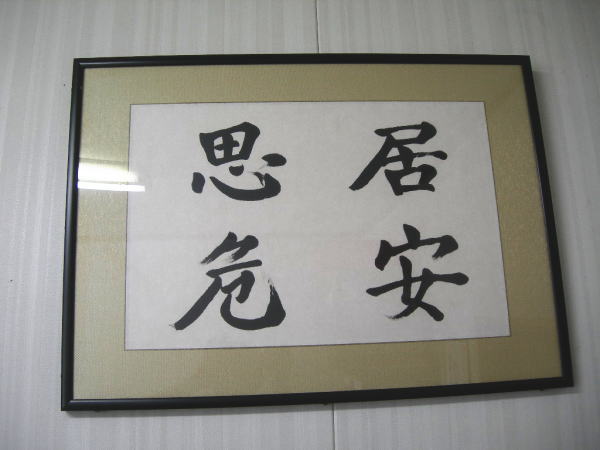 居安
思危